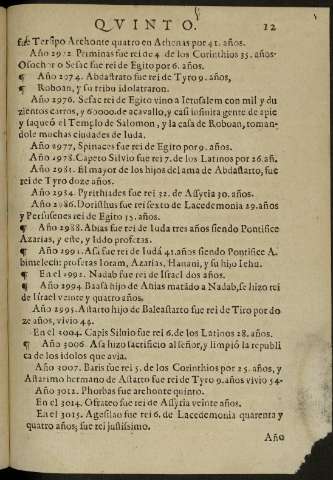 QVINTO. 12
fue Tersipo Archonte quatro en Athenas por 41. años.
Año 2972. Priminas fue rei de 4. de los Corinthios 35. años.
Osochor o Sesac fue rei de Egito por 6. años.
¶ Año 2974. Abdastrato fue rei de Tyro 9. años,
¶ Roboan, y su tribu idolatraron.
Año 2976. Sesac rei de Egito vino a Ierusalem con mil y du
zientos carros, y 60000. de acavallo, y casi infinita gente de apie
y saqueó el Templo de Salomon, y la casa de Roboan, toman-
dole muchas ciudades de Iuda.
Año 2977, Spinaces fue rei de Egito por 9. años.
Año 2978. Capeto Silvio fue rei 7. de los Latinos por 26. añ.
Año 2981. El mayor de los hijos del ama de Abdastarto, fue
rei de Tyro doze años.
Año 2984. Pyrithiades fue rei 32. de Assyria 30. años.
Año 2986. Doristhus fue rei sexto de Lacedemonia 29. años
y Persusenes rei de Egito 15. años.
¶ Año 2988. Abias fue rei de Iuda tres años siendo Pontifice
Azarias, y este, y Iddo profetas.
¶ Año 2991. Asa fue rei de Iudá 41. años siendo Pontifice A.
bimelech: profetas Ioram, Azarias, Hanani, y su hijo Iehu.
¶ En el 2992. Nadab fue rei de Israel dos años.
¶ Año 2994 Baasá hijo de Ahias matádo a Nadab, se hizo rei
de Israel veinte y quatro años.
Año 2995. Astarto hijo de Baleastarto fue rei de Tiro por do
ze años, vivio 44.
En el 3004. Capis Siluio fue rei 6. de los Latinos 28. años.
¶ Año 3006. Asa hizo sacrificio al señor, y limpió la republi
ca de los idolos que avia.
Año 3007. Baris fue rei 5. de los Corinthios por 25. años, y
Astarimo hermano de Astarto fue rei de Tyro 9. años vivio 54.
Año 3012. Phorbas fue archonte quinto.
En el 3014. Ofrateo fue rei de Assyria veinte años.
En el 3015. Agesilao fue rei 6. de Lacedemonia quarenta y
quatro años; fue rei justissimo.
Año